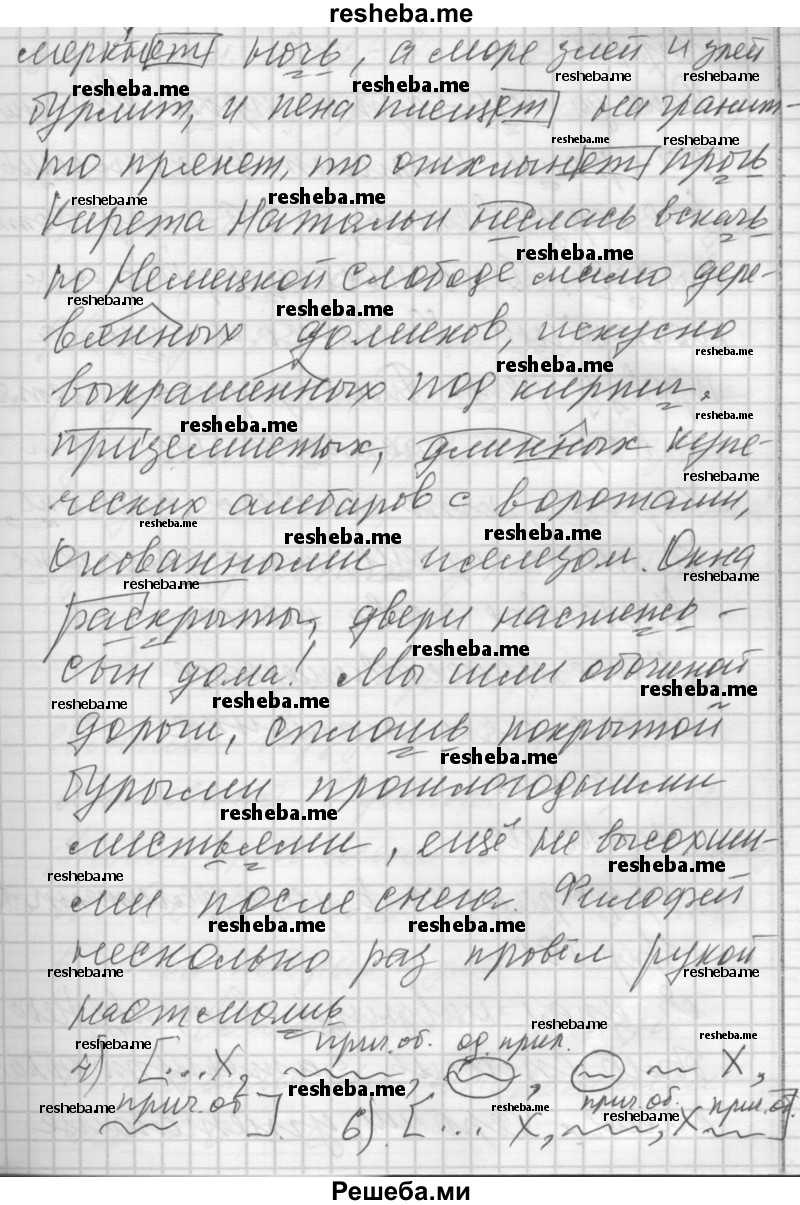 resheba.me
меркнет ночь, а море злей и злей
бурлит, и пена плещет на гранит –
то прянет, то отхлынет прочь.
Карета Натальи неслась вскачь
по Немецкой слободе мимо дере-
вянных домиков, искусно
выкрашенных под кирпич,
приземистых, длинных купе-
ческих амбаров с воротами,
окованными железом. Окна
раскрыты, двери настежь –
сын дома! Мы шли обочиной
дороги, сплошь покрытой
бурыми прошлогодними
листьями, ещё не высохши-
ми после снега. Филофей
несколько раз провёл рукой
наотмашь
прич.об. од.прил.
4) [...X, , , X,
прич.об ]. 6) [... X, прич.об., X прич.об.]
Решеба.ми